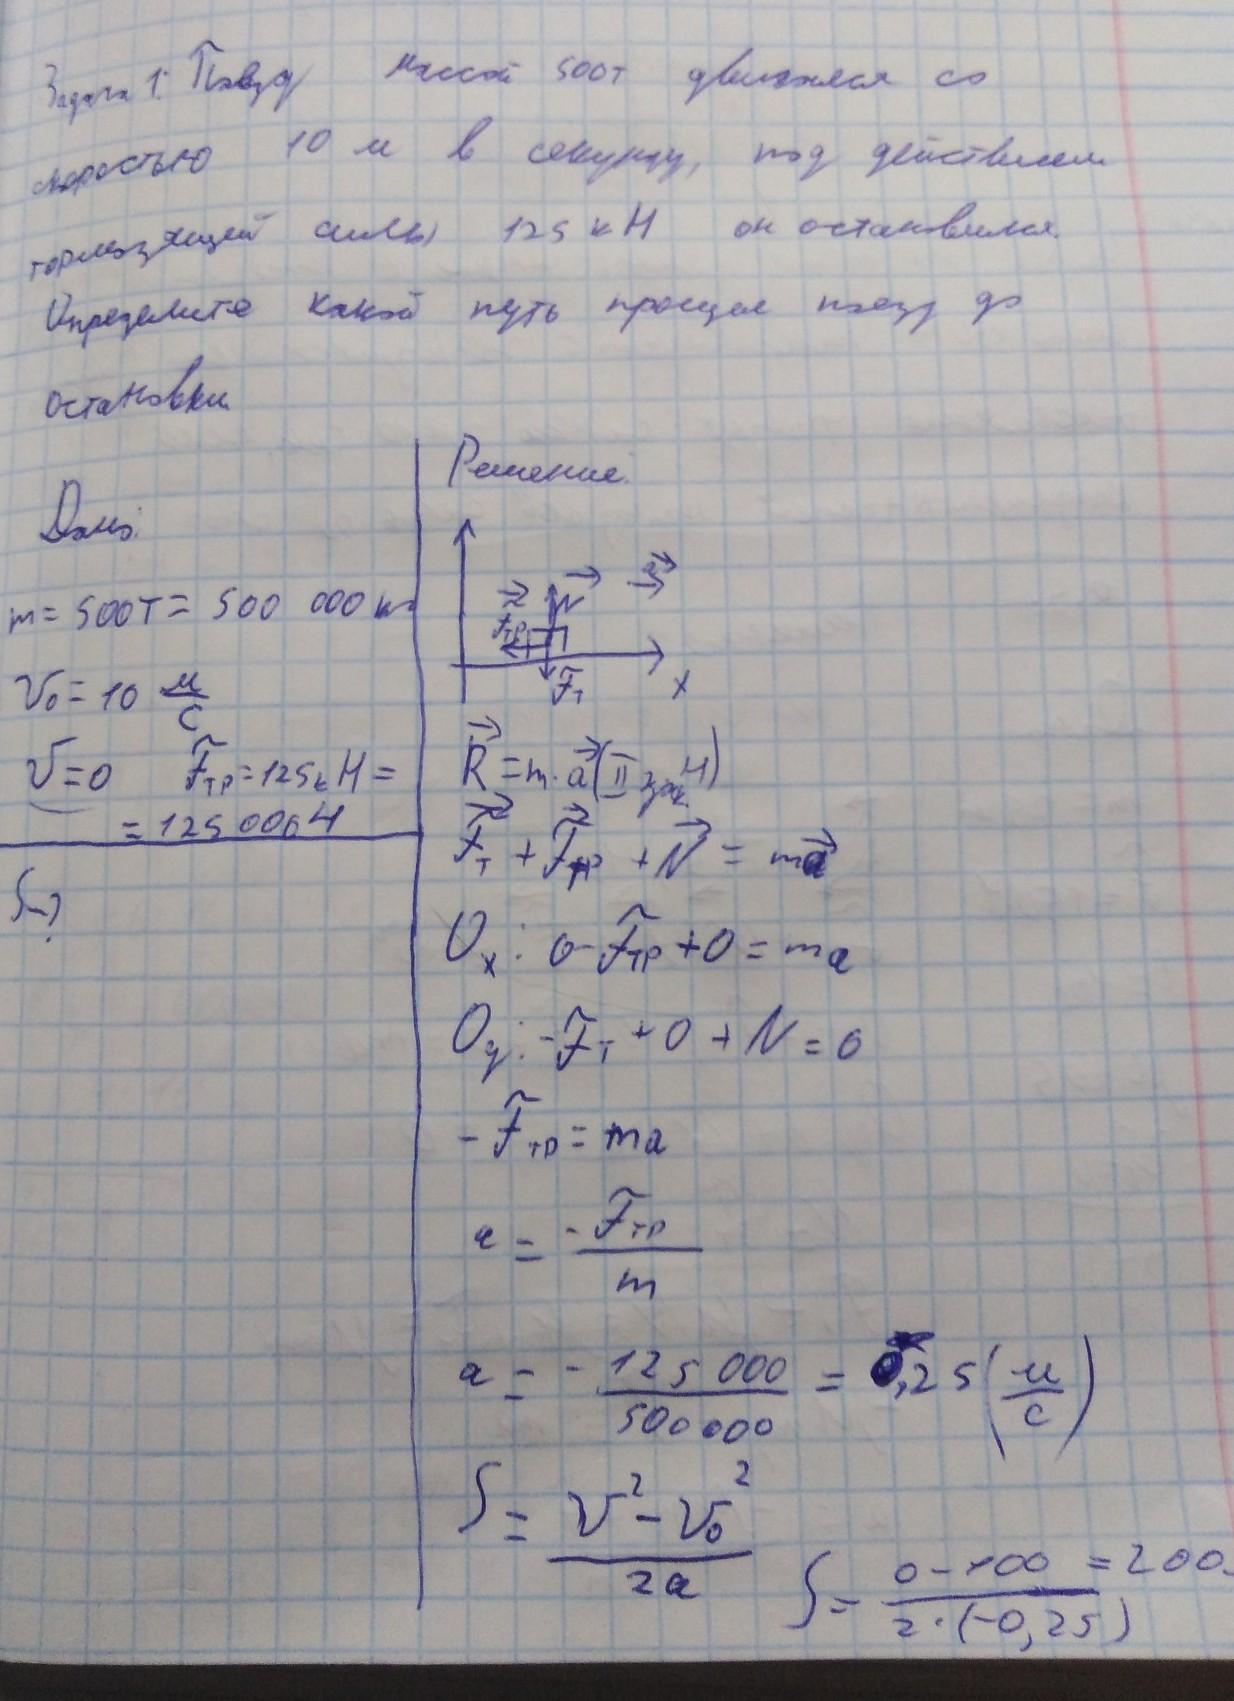 Задача 1. Поезд массой 500т двигался со
скоростью 10 м в секунду, под действием
тормозящей силы 125 кН он остановился.
Определите какой путь прошел поезд до
остановки
Дано:
m = 500т = 500 000 кг
V₀ = 10 м/с
V = 0 Fтр = 125 кН =
= 125 000 Н
S-?
Решение.
Fтр N a
Fт X
R = m · a (II зак Н)
Fт + Fтр + N = ma
Ox: 0 - Fтр + 0 = ma
Oy: -Fт + 0 + N = 0
- Fтр = ma
a = -Fтр / m
a = - 125 000 / 500 000 = 0,25 (м/с)
S = V² - V₀² / 2a
S = 0 - 100 / 2 · (-0,25) = 200